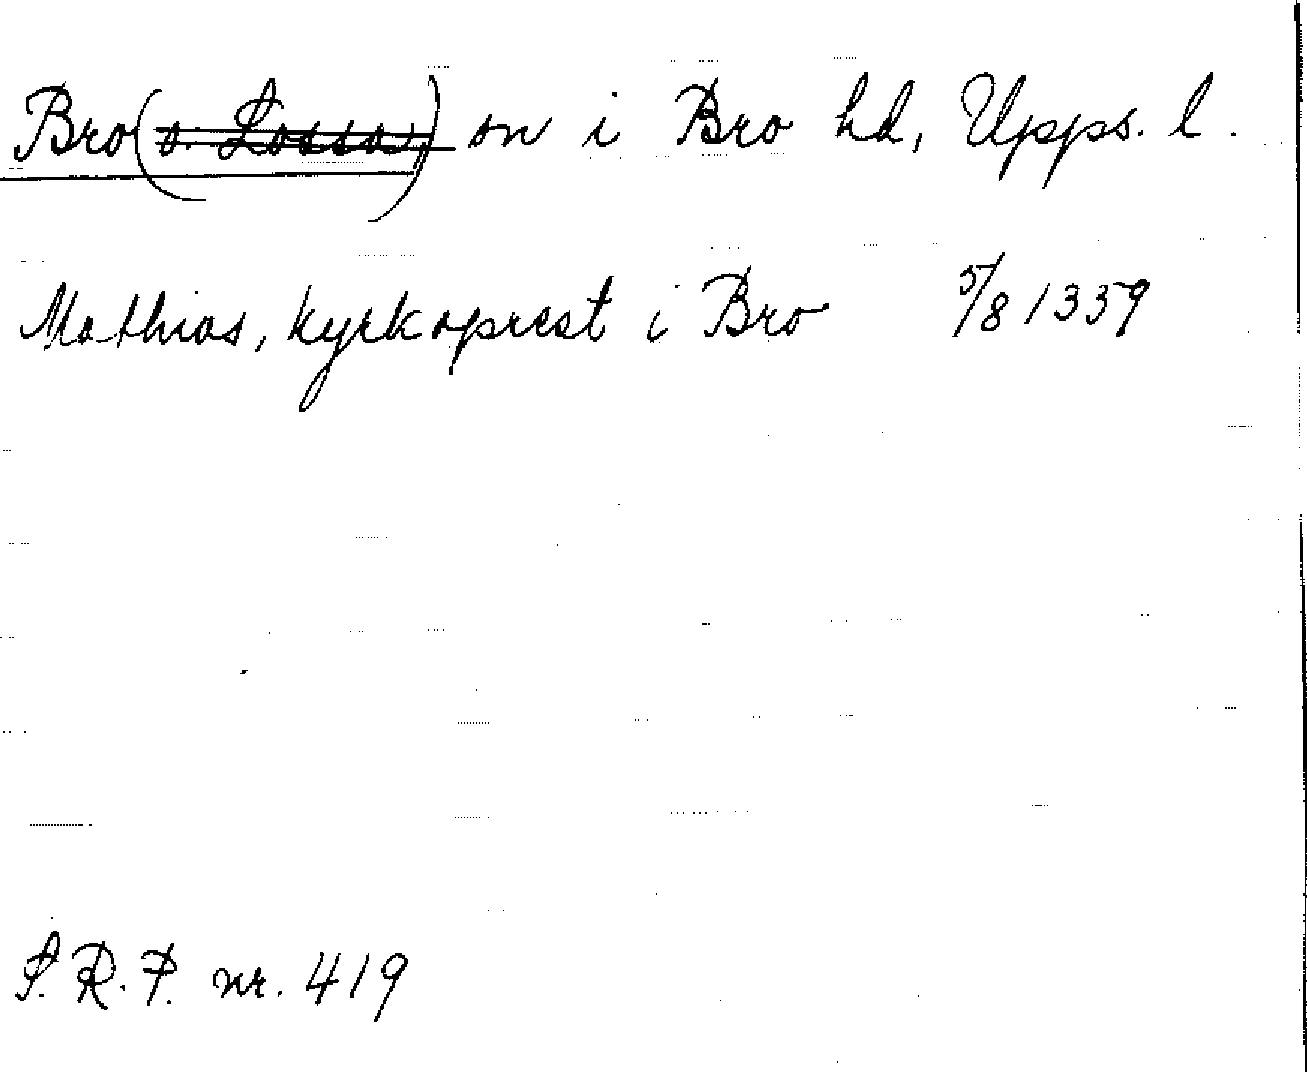 Bro (o. Lossa,) sn i Bro hd, Upps. l.
Mathias, kyrkoprest i Bro 5/8 1359
S. R. P. nr. 419